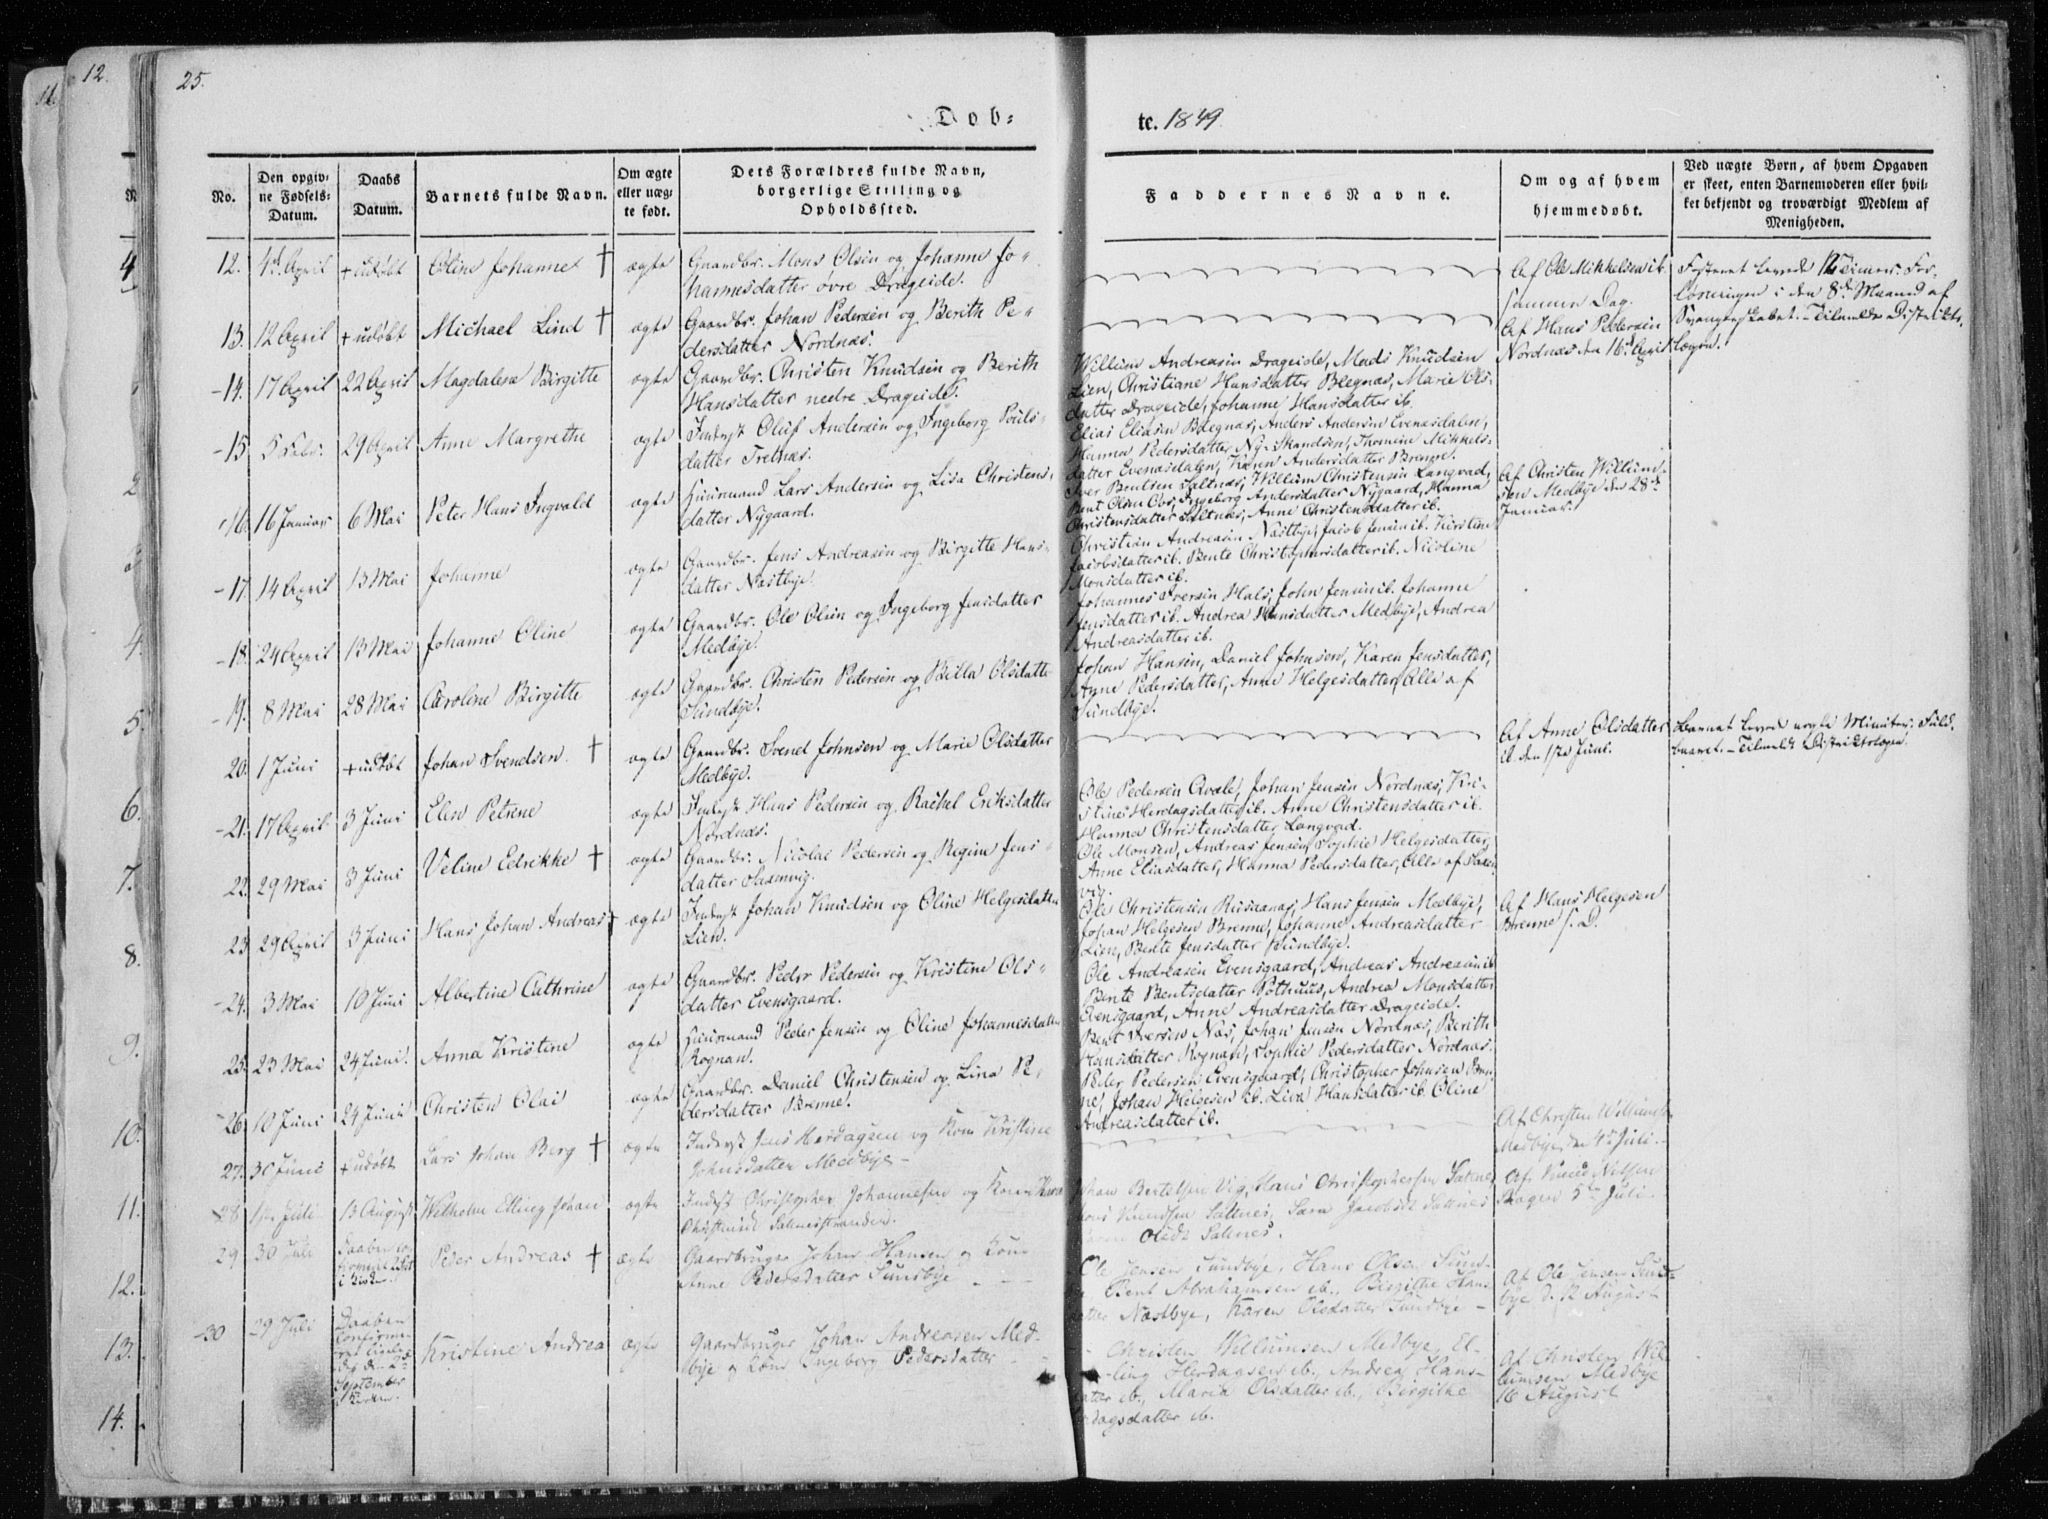 25.
12.
11.
Døb-
te. 1849.
No.
Den opgiv-
ne Fødsels-
Datum.
Daabs
Datum.
Barnets fulde Navn.
Om ægte
eller uæg-
te født.
Dets Forældres fulde Navn,
borgerlige Stilling og
Opholdssted.
Faddernes Navne.
Om og af hvem
hjemmedøbt.
Ved uægte Børn, af hvem Opgaven
er skeet, enten Barnemoderen eller hvil-
ket bekjendt og troværdigt Medlem af
Menigheden.
12. 4d April + udøbt Oline Johanne † ægte Gaardbr. Mons Olsen og Johanna Jo-
hannesdatter øvre Drageide.
Af Ole Mikkelsen ib.
samme Dag.
Fosteret levede 12 Timer. For-
løsningen i den 8de Maaned af
Svangerskabet. - Tilmeldt Distrikts-
lægen.
13. 12 April + udøbt Michael Lind † ægte Gaardbr. Johan Pedersen og Berith Pe-
dersdatter Nordnæs.
Af Hans Pedersen
Nordnæs den 16d April
14. 17 April 22 April Magdalena Birgitte ægte Gaardbr. Christen Knudsen og Berith
Hansdatter nedre Drageide.
Willum Andreasen Drageide, Mads Knudsen
Lien, Christiane Hansdatter Bregnæs, Marie Ols-
datter Drageide, Johanne Hansdatter ib.
15. 5 Febr. 29 April Anne Margrethe ægte Inderst Oluf Andersen og Ingeborg Pouls-
datter Tretnæs.
Elias Eliasen Bregnæs, Anders Andersen Evenesdalen,
Hanna Pedersdatter Ny-Skandsen, Thomine Mikkels-
datter Evenæsdalen, Karen Andersdatter Brenne.
16. 16 Januar 6 Mai Peter Hans Ingvald ægte Huusmand Lars Andersen og Lisa Christens-
datter Nygaard.
Iver Bentsen Saltnæs, Willum Christensen Langvad,
Bent Olsen Ços, Ingeborg Andersdatter Nygaard, Hanna
Christensdatter Saltnæs, Anne Christensdatter ib.
Af Christen Willum-
sen Medbye den 28de
Januar.
17. 14 April 13 Mai Johanne ægte Gaardbr. Jens Andreasen og Birgitte Hans-
datter Næstbye.
Christian Andreasen Næstbye, Jacob Jensen ib. Kirstine
Jacobsdatter ib. Bente Christophersdatter ib. Nicoline
Monsdatter ib.
18. 24 April 13 Mai Johanne Oline ægte Gaardbr. Ole Olsen og Ingeborg Jensdatter
Medbye.
Johannes Iversen Hals, John Jensen ib. Johanne
Jensdatter ib. Andrea Hansdatter Medbye, Andrea
Andreasdatter ib.
19. 8 Mai 28 Mai Caroline Birgitte ægte Gaardbr. Christen Pedersen og Billa Olsdatte
Sundbye.
Johan Hansen, Daniel Johnsen, Karen Jensdatter,
Anne Pedersdatter, Anne Helgesdatter, Alle af
Sundbye.
20. 1 Juni + udøbt Johan Svendsen. † ægte Gaardbr. Svend Johnsen og Marie Olsdatter
Medbye.
Af Anne Olsdatter
ib. den 1ste Juni.
Barnet levede nogle Minuter. Fuld-
baaret. - Tilmeldt Distriktslægen.
21. 17 April. 3 Juni Elen Petrine ægte Inderst Hans Pedersen og Rachel Eriksdatter
Nordnæs.
Ole Pedersen Qvale, Johan Jensen Nordnæs, Kri-
stine Herdagsdatter ib. Anne Christensdatter ib.
Hanna Christensdatter Langvad.
22. 29 Mai 3 Juni Veline Edrikke † ægte Gaardbr. Nicolai Pedersen og Regine Jens-
datter Saxenvig.
Ole Monsen, Andreas Jensen, Sophie Helgesdatter,
Anne Eliasdatter, Hanna Pedersdatter, Alle af Saxen-
vig.
23. 29 April 3 Juni Hans Johan Andreas † ægte Inderst Johan Knudsen og Oline Helgesdatter
Lien.
Ole Christensen Rusaanæs, Hans Jensen Medbye,
Johan Helgesen Brenne, Johanne Andreasdatter
Lien, Bente Jensdatter Sundbye.
Af Hans Helgesen
Brenne s. D.
24. 3 Mai 10 Juni Albertine Cathrine ægte Gaardbr. Peder Pedersen og Kristine Ols-
datter Evensgaard.
Ole Andreasen Evensgaard, Andreas Andreasen ib
Bente Bentsdatter Pothuus, Andrea Monsdatter
Evensgaard, Anne Andreasdatter Drageide.
25. 23 Mai 24 Juni. Anna Kristine ægte Huusmand Peder Jensen og Oline Johannesdatter
Rognan.
Bent Iversen Næs, Johan Jensen Nordnæs, Berith
Hansdatter Rognan, Sophie Pedersdatter Nordnæs.
26. 10 Juni 24 Juni Christen Olai ægte Gaardbr. Daniel Christensen og Lina Pe-
dersdatter Brenne.
Peder Pedersen Evensgaard, Christopher Johnsen Bren-
ne, Johan Helgesen ib. Lisa Hansdatter ib. Oline
Andreasdatter ib.
27. 30 Juni + udøbt Lars Johan Berg † ægte Inderst Jens Herdagsen og Kone Kristine
Johnsdatter Medbye -
Af Christen Willumsen
Medbye den 4de Juli.
28 1ste Juli 13 August Wilhelm Elling Johan ægte Inderst Christopher Johannesen og Kone Karen
Christensd.
Johan Bertelsen Vig, Hans Christophersen Saltnes,
Knudsen Saltnes, Sara Jacobsd. Saltnes
Olsdr Saltnes.
Af Knud Nilsen
5te Juli
29 30 Juli i Kirken. Peder Andreas † ægte Gaardbruger Johan Hansen og Kone
Anne Pedersdatter Sundbye - - -
Ole Jensen Sundbye, Hans Olsen Sund-
Bent Abrahamsen ib., Birgithe Hans
datter Næstbye, Karen Olsdatter Sundbye -
Af Ole Jensen Sund-
bye d. 12 August
30 29 Juli Daaben
confirme-
ret
September
i Kirken. Kristine Andrea ægte Gaardbruger Johan Andreasen Med-
bye og Kone Ingeborg Pedersdatter
Christen Willumsen Medbye, El-
ling Herdagsen ib., Andrea Hans-
datter ib., Maria Olsdatter ib., Birgithe
dagsdatter ib.
Af Christen Wil-
lumsen Medbye
16 August
4
2
4.
5.
6.
7.
8.
9.
10.
11.
12.
13.
14.